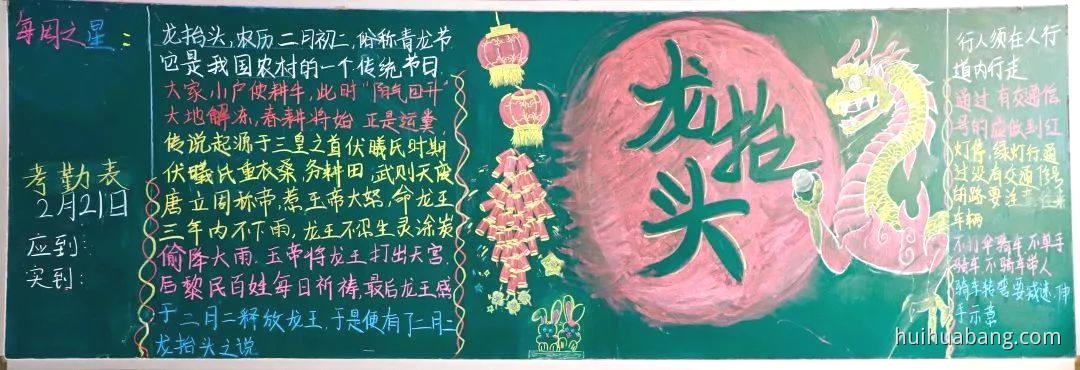 每周之星：
考勤表
2月21日
应到：
实到：
龙抬头，农历二月初二，俗称青龙节
也是我国农村的一个传统节日
大家小户使耕牛，此时“阳气回升”
大地解冻，春耕将始 正是运粪
传说起源于三皇之首伏羲氏时期
伏羲氏重农桑，务耕田，武则天废
唐立周称帝，惹玉帝大怒，命龙王
三年内不下雨，龙王不忍生灵涂炭
偷降大雨，玉帝将龙王打出天宫，
后黎民百姓每日祈祷，最后龙王感
于二月二释放龙王，于是便有了二月二
龙抬头之说
龙抬头
行人须在人行
道内行走
通过有交通信
号的应做到红
灯停，绿灯行，通
过没有交通信号
的路要注
车辆
不打伞骑车，不单手
骑车，不骑车带人
骑车转弯要减速，伸
手示意
huihuabang.com